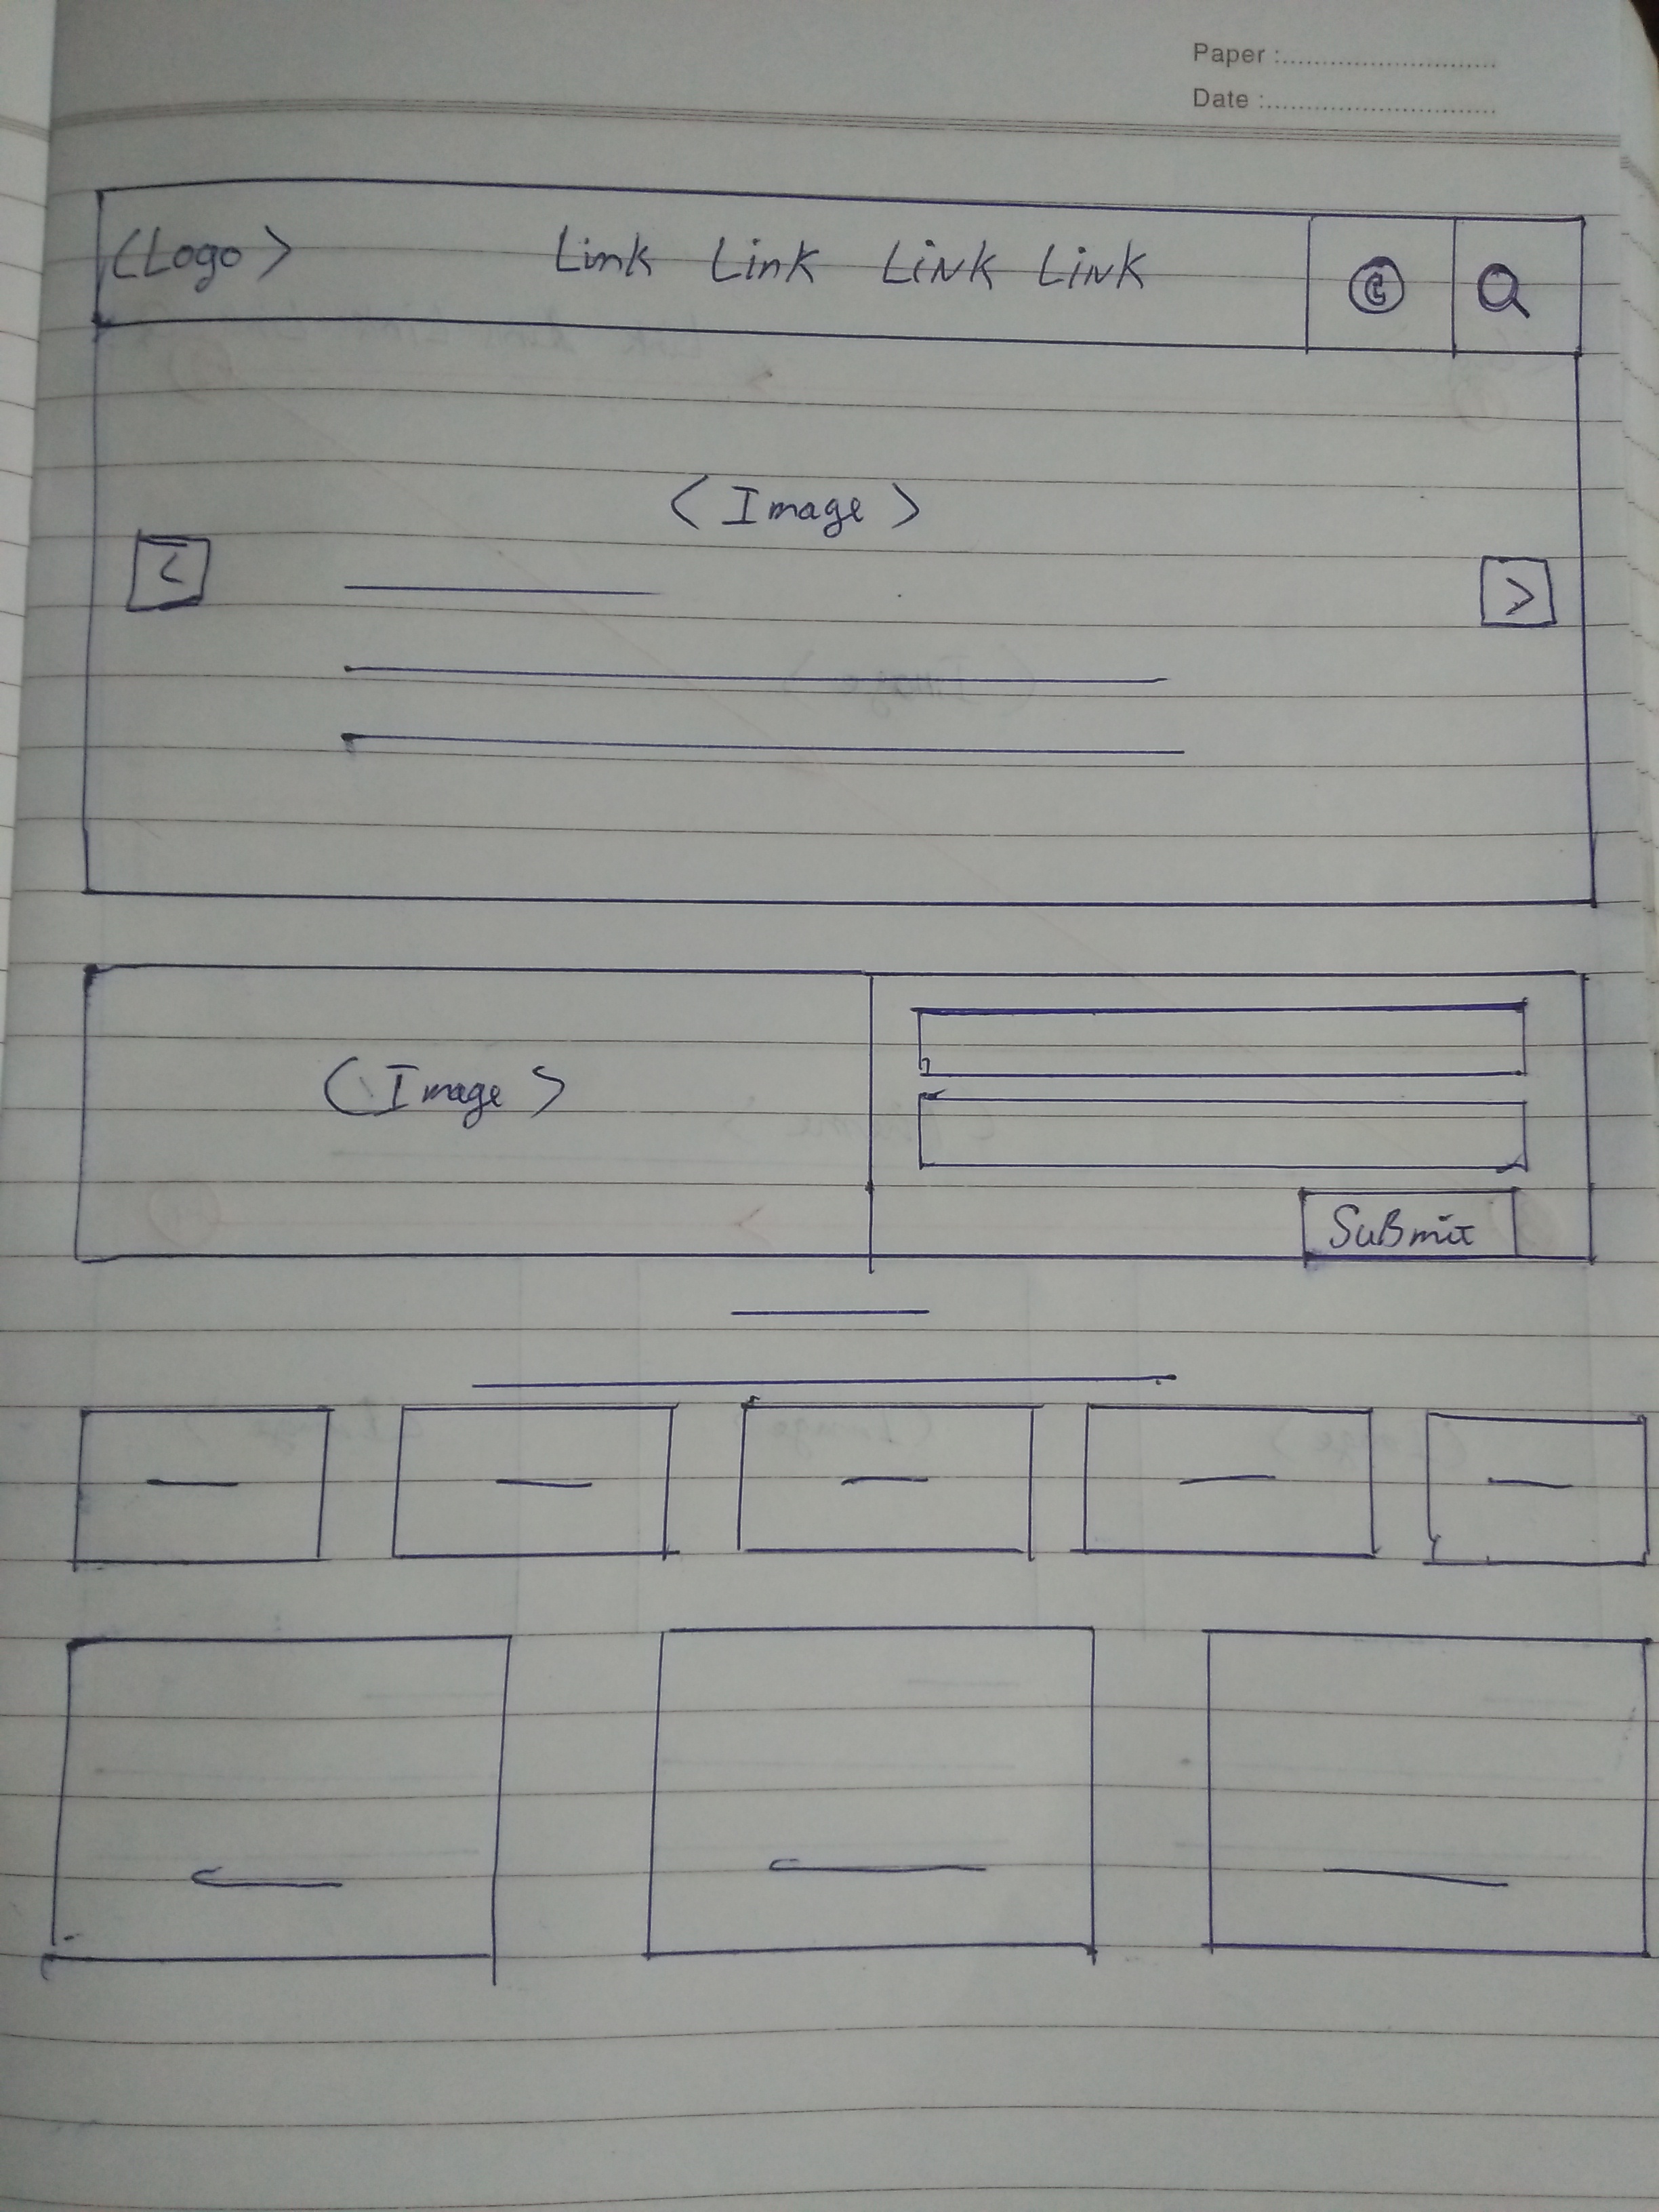 Paper :
Date :
<Logo> Link Link LiNK LiNK
©
< Image >
< >
<Image>
SuBmit